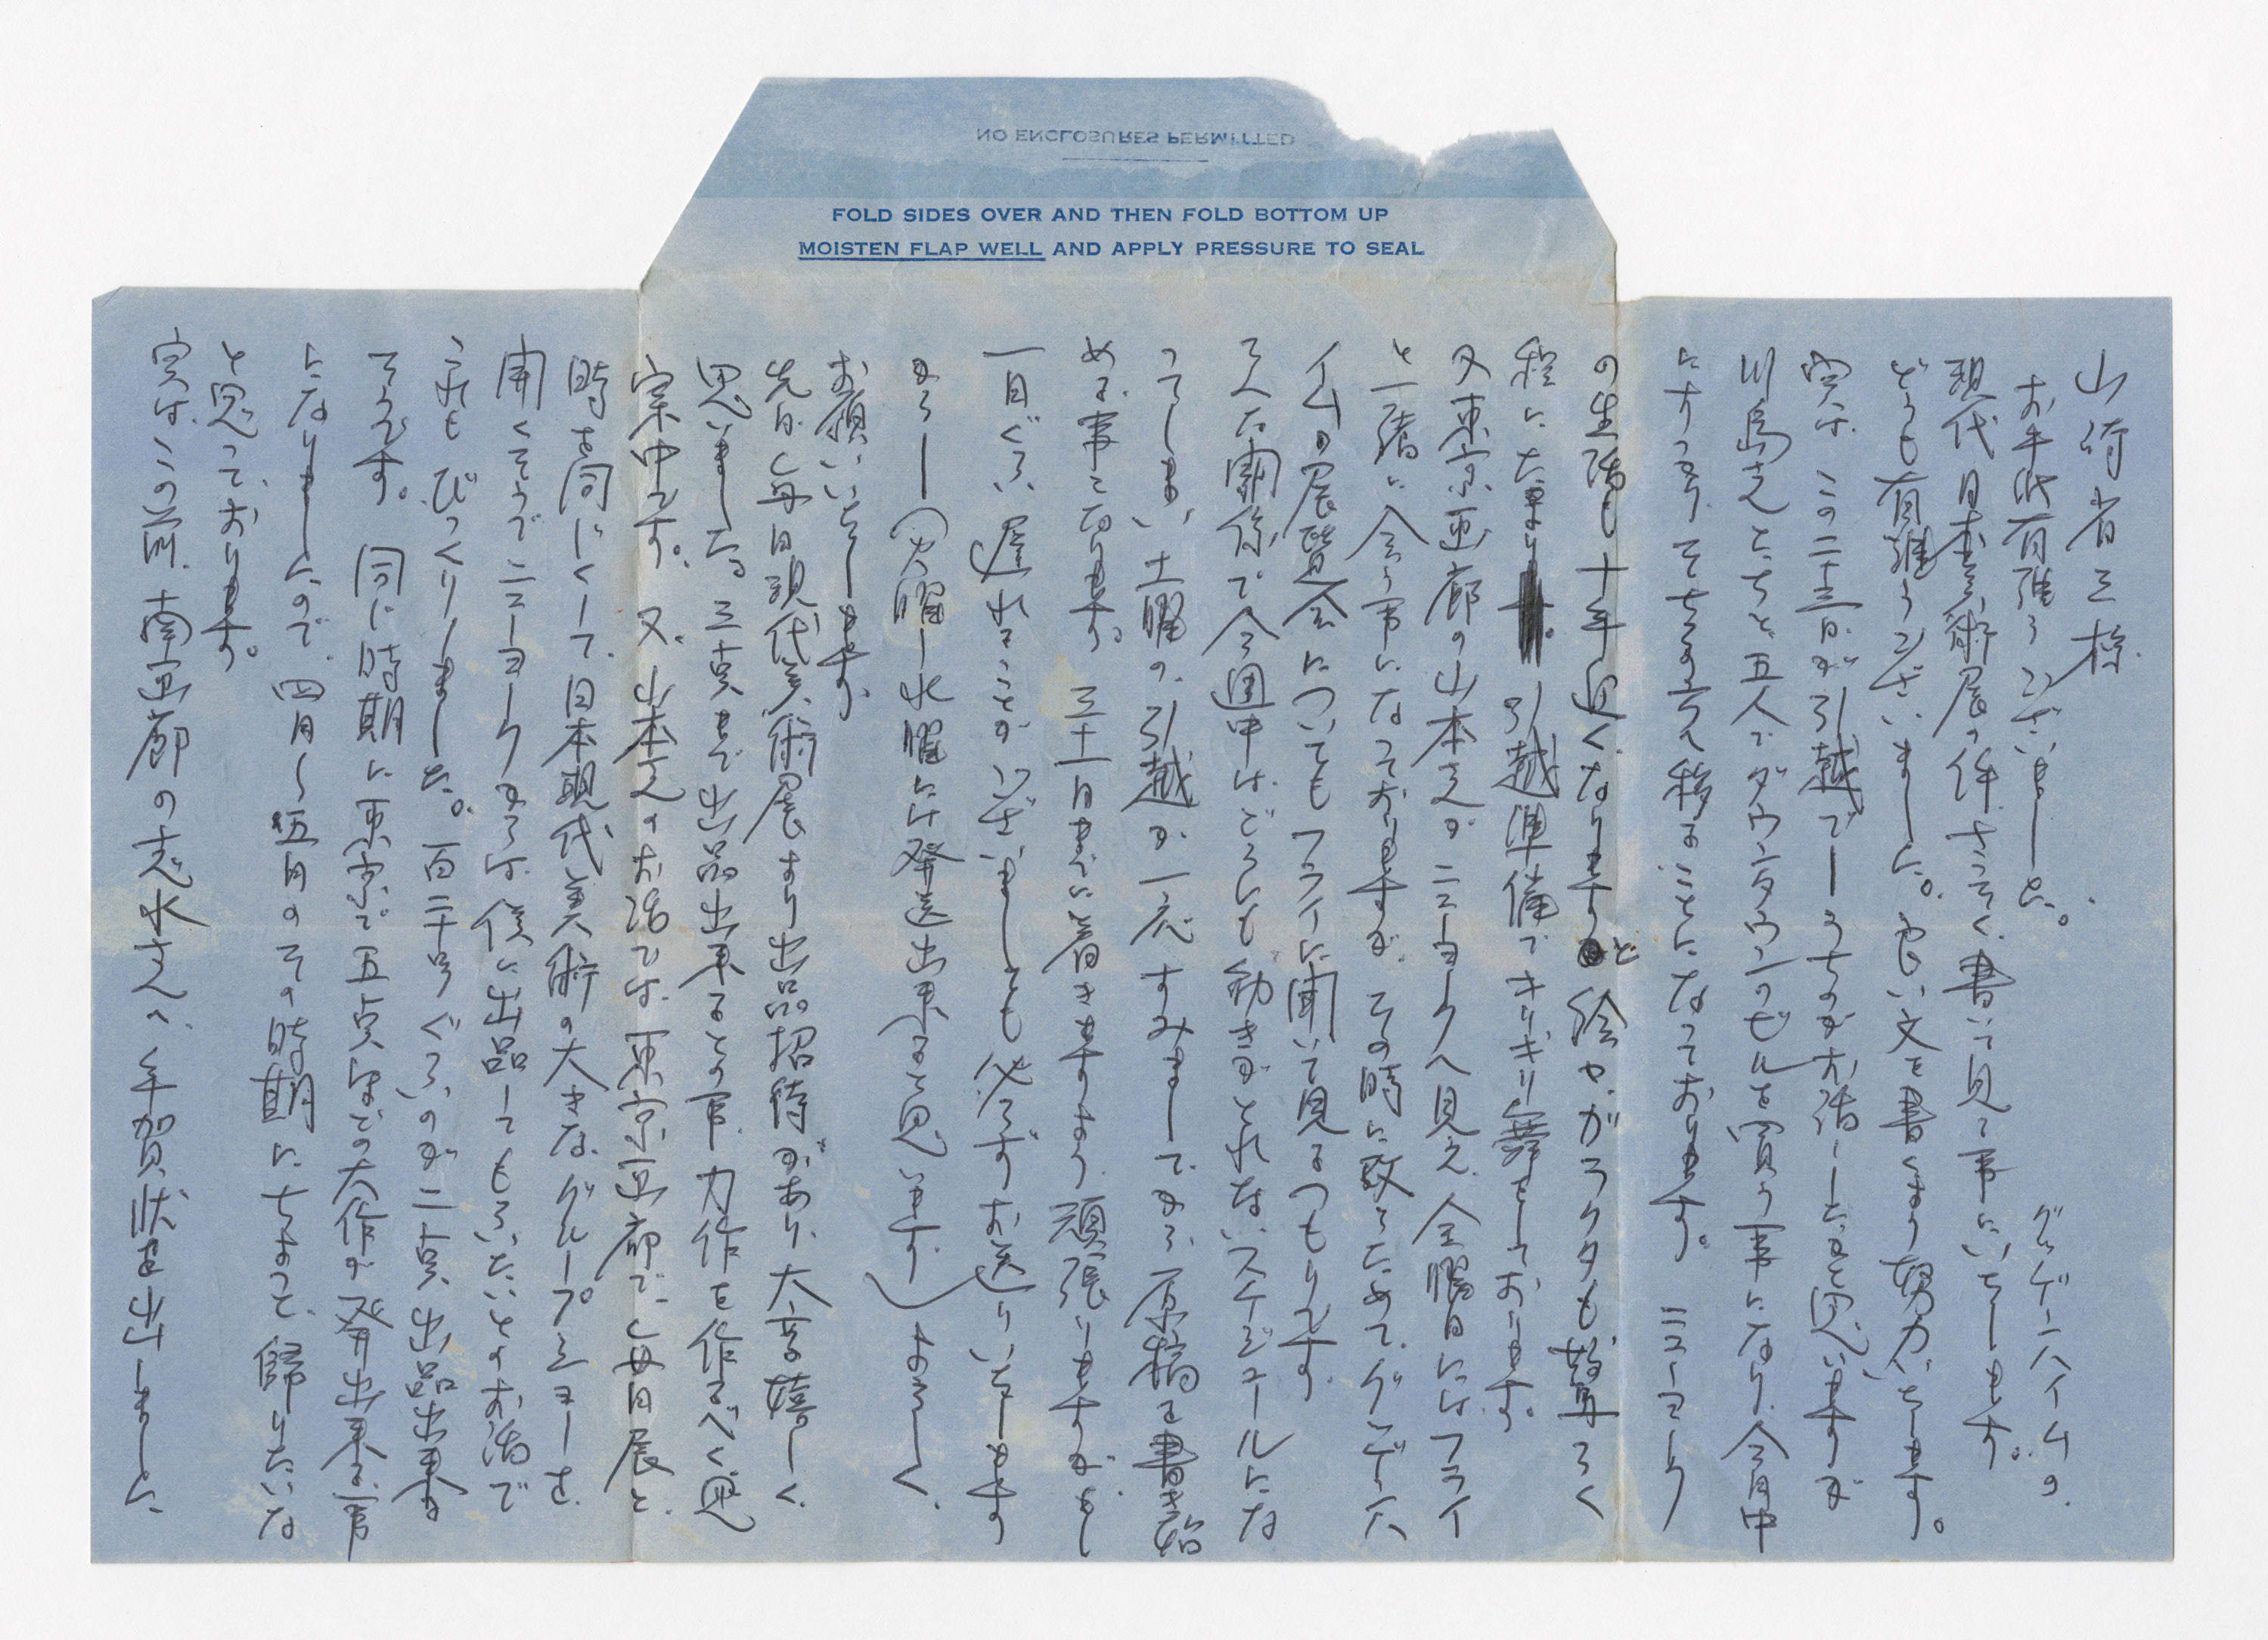 NO ENCLOSURES PERMITTED
FOLD SIDES OVER AND THEN FOLD BOTTOM UP
MOISTEN FLAP WELL AND APPLY PRESSURE TO SEAL
山荷省三様
お手紙有難うございました。グッゲンハイムの
現代日本美術展の件さっそく書いて見る事にいたします。
どうも有難うございました。良い文を書くよう努力いたします。
実は、この二十三日が引越でしうちのがお話ししたかと思いますが
川島さんたちと五人でダウンタウンのビルを買う事になり、今月中
にすっかりそちらの方へ移ることになっております。ニューヨーク
の生活も十年近くなりますと絵やガラクタも数多く
程にたまり引越準備でキリギリ舞をしております。
又東京画廊の山本さんがニューヨークへ見え、金曜日にはフライ
と一緒に会う事になっておりますが、その時に改らためてグッゲンハ
イムの展覧会についてもフライに聞いて見るつもりです。
そんな関係で今週中はどうにも動きがとれないスケジュールにな
ってしまい、土曜の引越が一応すみましてから、原稿を書き始
める事になります。三十一日までに着きますよう、頑張りますが、もし
一日ぐらい遅れることがございましても必らずお送りいたします
から―(火曜―水曜には発送出来ると思います)よろしく
お願いいたします
先日、毎日現代美術展より出品招待があり、大変嬉しく
思いました。三点まで出品出来るとの事、力作を作るべく思
案中です。又、山本さんのお話では、東京画廊で、毎日展と
時を同じくして、日本現代美術の大きなグループショーを
開くそうでニューヨークからは僕に出品してもらいたいとのお話で
これもびっくりしました。百二十号ぐらいのが二点出品出来る
そうです。同じ時期に東京で五点ほどの大作が発表出来る事
になりましたので、四月〜五月のその時期にちょっと帰りたいな
と思っております。
実はこの前、南画廊の志水さんへ、年賀状を出しました